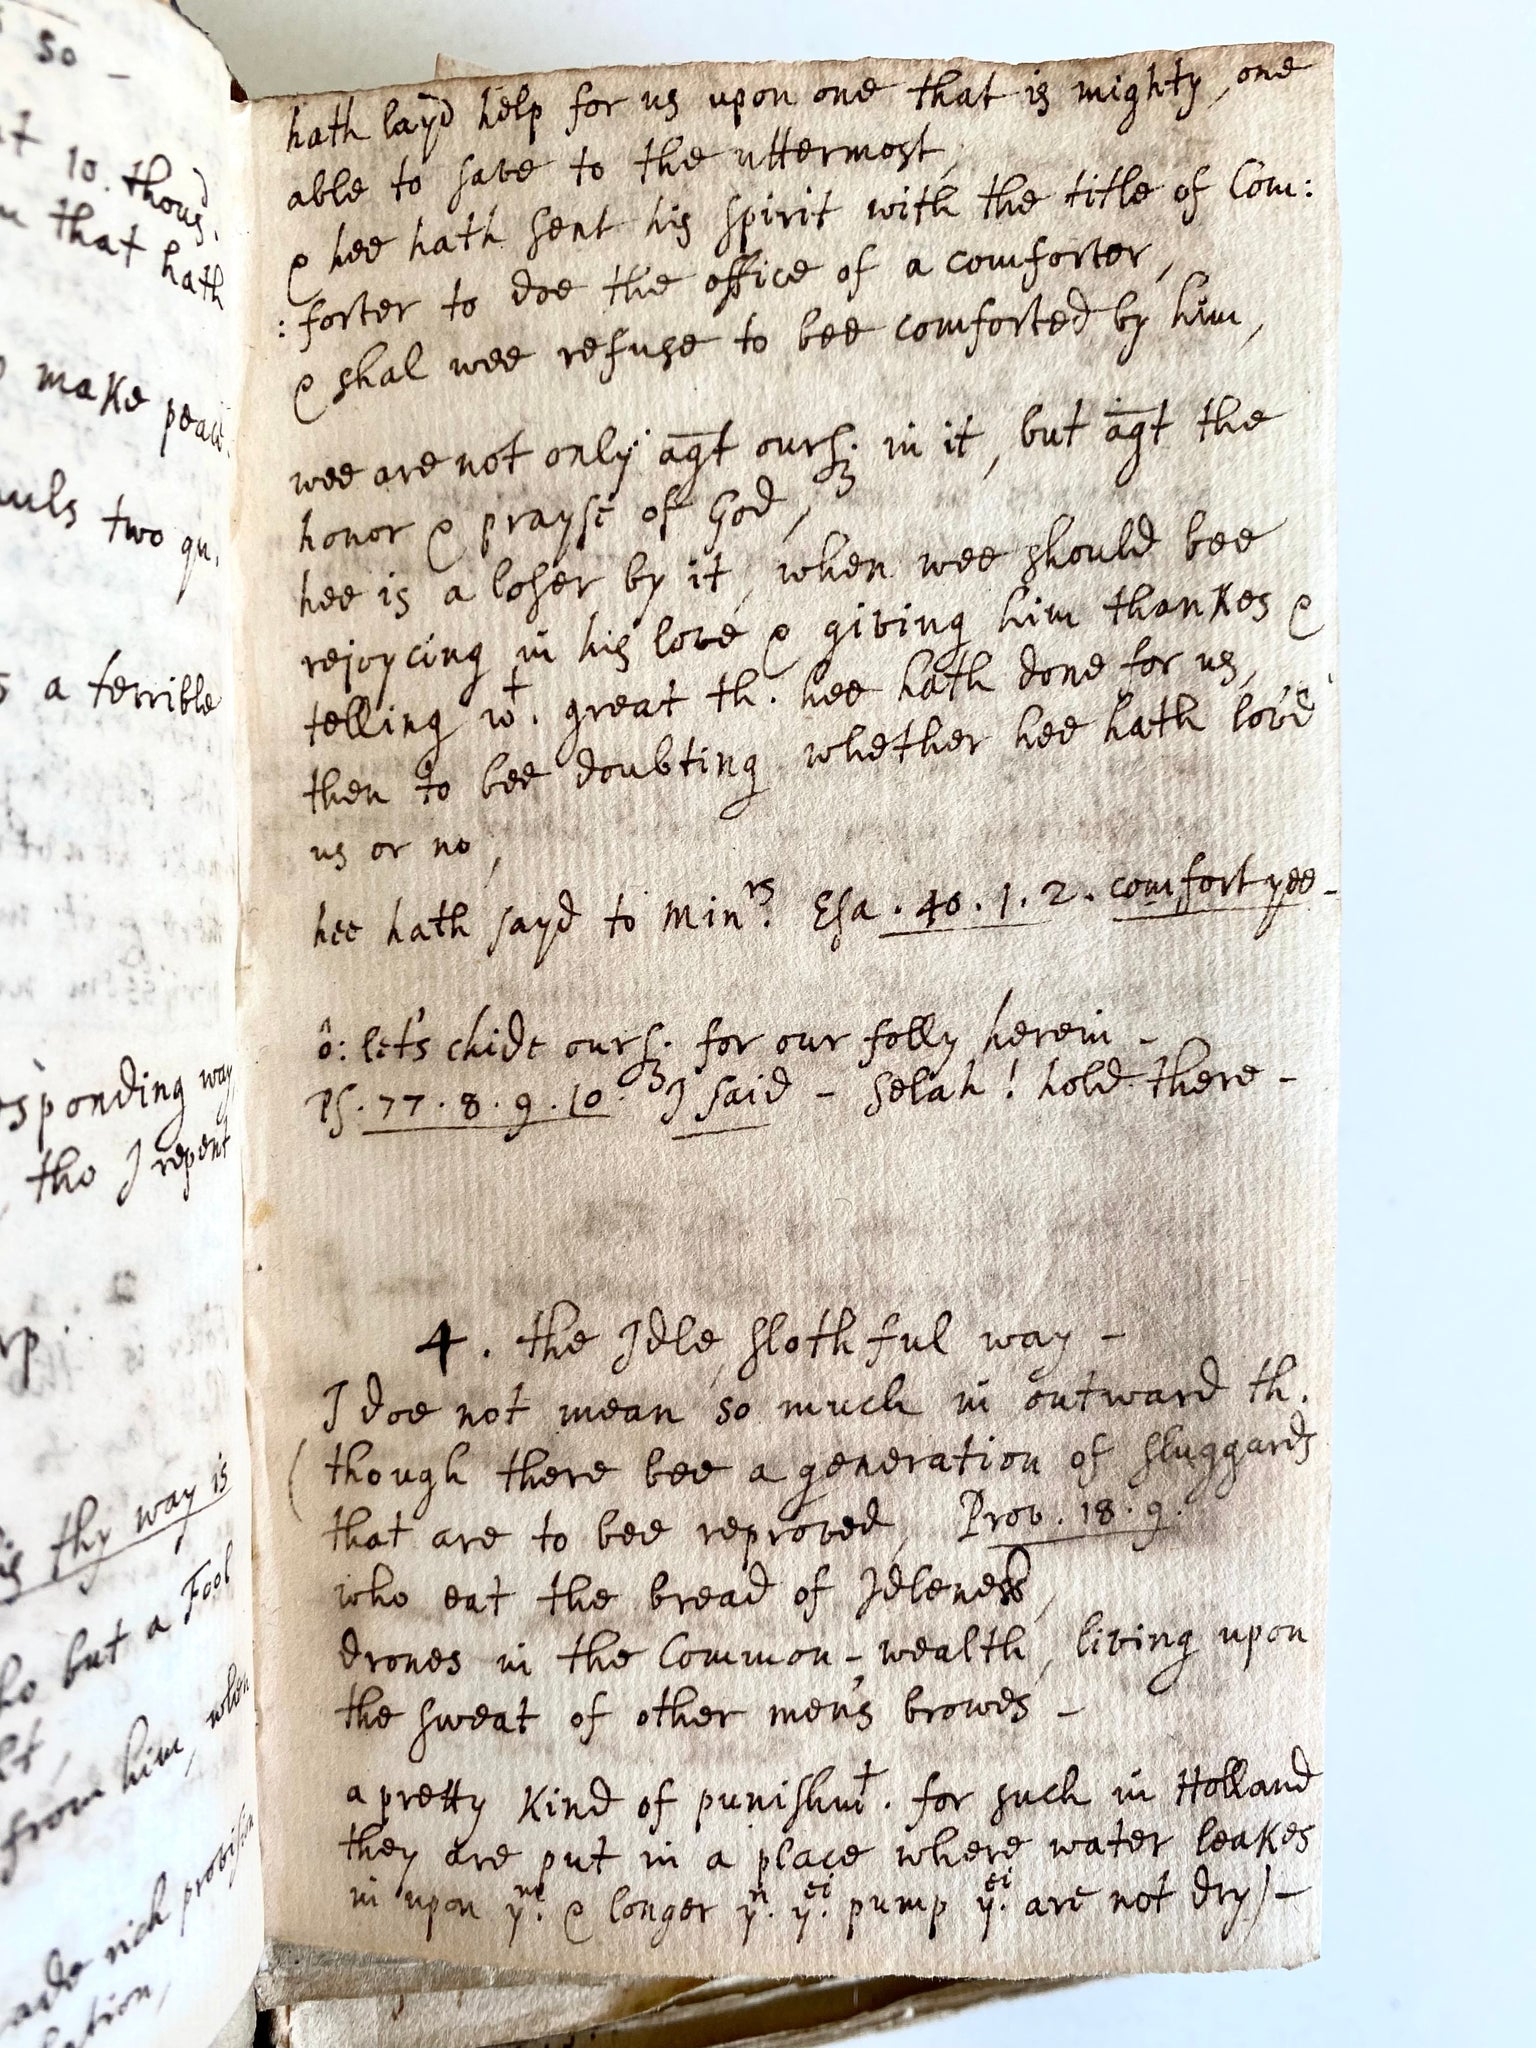 so -
10. thous^d.
that hath
make peace.
two qu.
a terrible
way
tho I repent
thy way is
but a Fool
from him, when
rich provision
hath lay'd help for us upon one that is mighty, one
able to save to the uttermost,
& hee hath sent his spirit with the title of Com:
:forter to doe the office of a comforter,
& shal wee refuse to bee comforted by him,
wee are not only agt ours. in it, but agt the
honor & prayse of God,
hee is a loser by it, when wee should bee
rejoycing in his love & giving him thankes &
telling w^t. great th. hee hath done for us,
then to bee doubting whether hee hath lov'd
us or no,
hee hath sayd to Min^rs. Esa. 40. 1. 2. comfort yee -
ô: let's chide ours. for our folly herein -
Ps. 77. 8. 9. 10. I said - Selah! hold there -
4. the Idle, slothful way -
I doe not mean so much in outward th.
(though there bee a generation of sluggards
that are to bee reproved, Prov. 18. 9.
who eat the bread of Idleness,
drones in the Common-wealth, living upon
the sweat of other men's browes -
a pretty kind of punishm^t. for such in Holland
they are put in a place where water leakes
in upon y^m. & longer y^n. y^ei. pump y^ei. are not dry) -